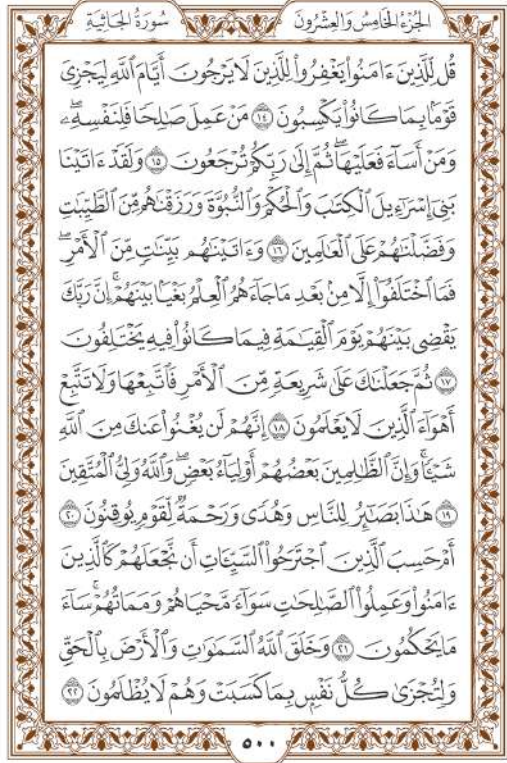 الجُزْءُ الخَامِسُ وَالعِشْرُونَ
سُورَةُ الجَاثِيَةِ
قُل لِّلَّذِينَ ءَامَنُواْ يَغْفِرُواْ لِلَّذِينَ لَا يَرْجُونَ أَيَّامَ ٱللَّهِ لِيَجْزِيَ
قَوْمَۢا بِمَا كَانُواْ يَكْسِبُونَ ١٤ مَنْ عَمِلَ صَٰلِحٗا فَلِنَفْسِهِۦۖ
وَمَنْ أَسَآءَ فَعَلَيْهَاۖ ثُمَّ إِلَىٰ رَبِّكُمْ تُرْجَعُونَ ١٥ وَلَقَدْ ءَاتَيْنَا
بَنِيٓ إِسْرَٰٓءِيلَ ٱلْكِتَٰبَ وَٱلْحُكْمَ وَٱلنُّبُوَّةَ وَرَزَقْنَٰهُم مِّنَ ٱلطَّيِّبَٰتِ
وَفَضَّلْنَٰهُمْ عَلَى ٱلْعَٰلَمِينَ ١٦ وَءَاتَيْنَٰهُم بَيِّنَٰتٖ مِّنَ ٱلْأَمْرِۖ
فَمَا ٱخْتَلَفُوٓاْ إِلَّا مِنۢ بَعْدِ مَا جَآءَهُمُ ٱلْعِلْمُ بَغْيَۢا بَيْنَهُمْۚ إِنَّ رَبَّكَ
يَقْضِي بَيْنَهُمْ يَوْمَ ٱلْقِيَٰمَةِ فِيمَا كَانُواْ فِيهِ يَخْتَلِفُونَ
١٧ ثُمَّ جَعَلْنَٰكَ عَلَىٰ شَرِيعَةٖ مِّنَ ٱلْأَمْرِ فَٱتَّبِعْهَا وَلَا تَتَّبِعْ
أَهْوَآءَ ٱلَّذِينَ لَا يَعْلَمُونَ ١٨ إِنَّهُمْ لَن يُغْنُواْ عَنكَ مِنَ ٱللَّهِ
شَيْـٔٗاۚ وَإِنَّ ٱلظَّٰلِمِينَ بَعْضُهُمْ أَوْلِيَآءُ بَعْضٖۖ وَٱللَّهُ وَلِيُّ ٱلْمُتَّقِينَ
١٩ هَٰذَا بَصَٰٓئِرُ لِلنَّاسِ وَهُدٗى وَرَحْمَةٞ لِّقَوْمٖ يُوقِنُونَ ٢٠
أَمْ حَسِبَ ٱلَّذِينَ ٱجْتَرَحُواْ ٱلسَّيِّـَٔاتِ أَن نَّجْعَلَهُمْ كَٱلَّذِينَ
ءَامَنُواْ وَعَمِلُواْ ٱلصَّٰلِحَٰتِ سَوَآءٗ مَّحْيَاهُمْ وَمَمَاتُهُمْۚ سَآءَ
مَا يَحْكُمُونَ ٢١ وَخَلَقَ ٱللَّهُ ٱلسَّمَٰوَٰتِ وَٱلْأَرْضَ بِٱلْحَقِّ
وَلِتُجْزَىٰ كُلُّ نَفْسِۭ بِمَا كَسَبَتْ وَهُمْ لَا يُظْلَمُونَ ٢٢
٥٠٠